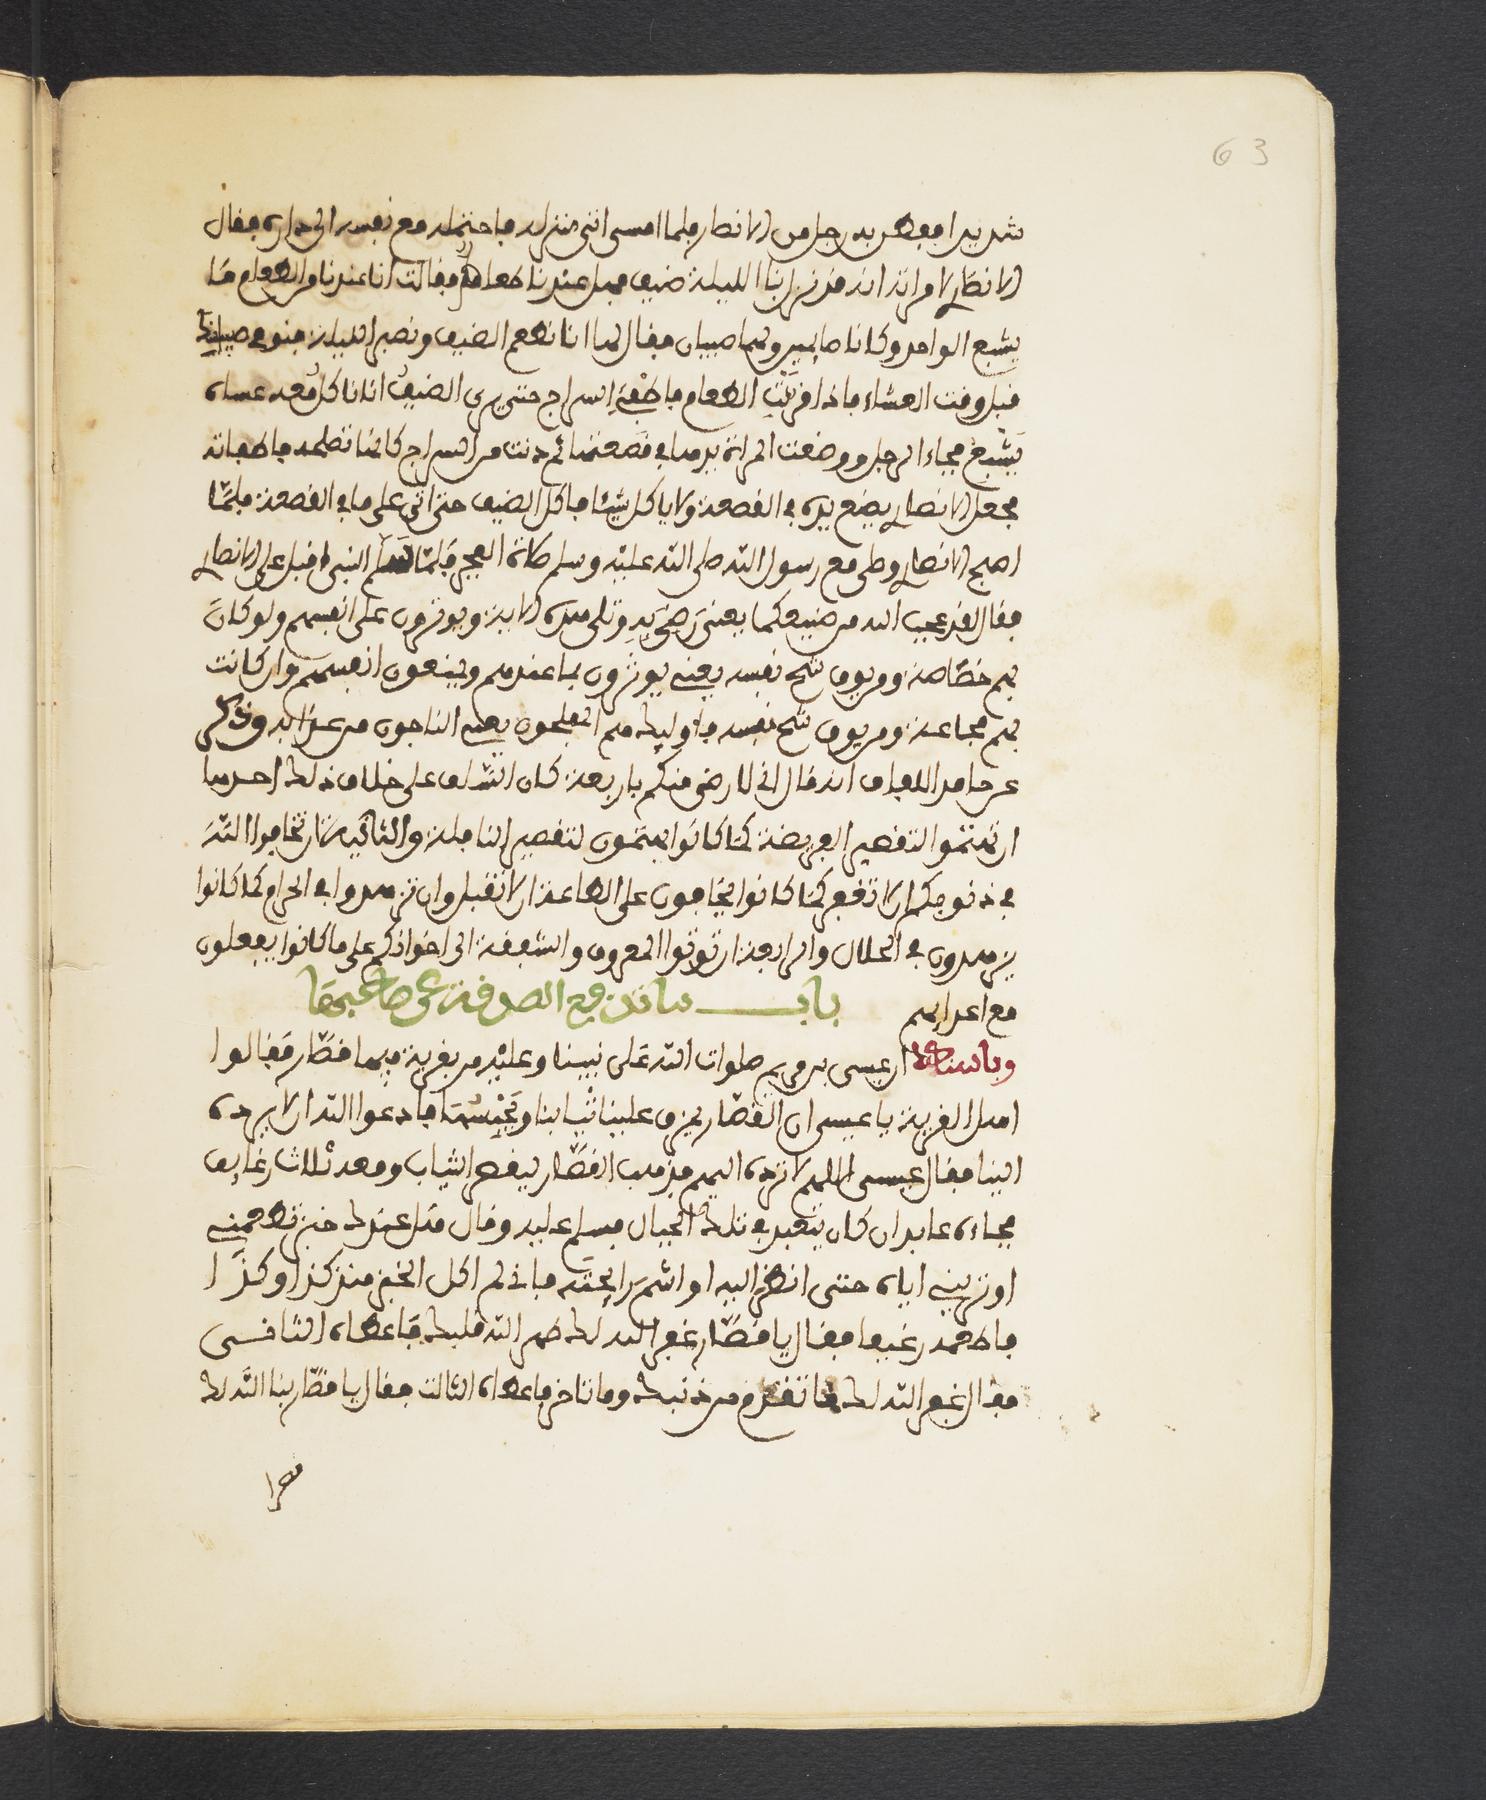 63
شديدا ففطن به رجل من الانصار فلما امسى اتى منزله فاحتمله مع نفسه الى داره فقال
الانصاري لامراته انه قد نزل بنا الليلة ضيف فهل عندنا طعام فقالت انا عندنا من الطعام ما
يشبع الواحد وكانا صايمين ولهما صبيان فقال لها انا نطعم الضيف ونصبر الليلة فنومي صبياننا
قبل وقت العشاء فاذا قربت الطعام فاطفئي السراج حتى يرى الضيف اننا ناكل معه عساه
يشبع فجاء الرجل ووضعت المراة ثريدها في قصعتها ثم دنت من السراج كانها تصلحه فاطفاته
فجعل الانصاري يضع يده في القصعة ولا ياكل شيئا فاكل الضيف حتى اتى على ما في القصعة فلما
اصبح الانصاري وصلى مع رسول الله صلى الله عليه وسلم صلاة الفجر فلما سلم النبي اقبل على الانصاري
فقال لقد عجب الله من ضيعكما يعني رضي به وتلى هذه الاية ويوثرون على انفسهم ولو كان
بهم خصاصة ومن يوق شح نفسه يعني يوثرون بما عندهم ويمنعون انفسهم وان كانت
بهم مجاعة ومن يوق شح نفسه فاوليك هم المفلحون يعني الناجون من عذاب الله وذكر
عن حامد اللفاف انه قال اني لا رضى منكم باربعة كان السلف على خلاف ذلك احدها
ان تهتموا لتقصير الفريضة كما كانوا يهتمون لتقصير النافلة والثانية ان تخافوا الله
في ذنوبكم ان لا تغفر كما كانوا يخافون على الطاعة ان لا تقبل وان تزهدوا في الحرام كما كانوا
يزهدون في الحلال والرابعة ان توتوا المعروف والشفقة الى اخوانكم على ما كانوا يفعلون
مع اعدايهم
بـــــاب ما تدفع الصدقة عن صاحبها
وباسناده ان عيسى بن مريم صلوات الله على نبينا وعليه مر بقرية فيها قصار فقالوا
اهل القرية يا عيسى ان القصار يمزق علينا ثيابنا ويحبسها فادعوا الله ان لا يرده
الينا فقال عيسى اللهم لا ترده اليهم فذهب القصار ليقصر الثياب ومعه ثلاث رغايف
فجاءه عابد ان كان يتعبد في تلك الجبال فسلم عليه وقال هل عندك خبز تطعمني
او تريني اياه حتى انظر اليه او اشم رايحته فاني لم اكل الخبز منذ كذا وكذا
فاطعمه رغيفا فقال يا قصار غفر الله لك طهر الله قلبك فاعطاه الثاني
فقال غفر الله لك ما تقدم من ذنبك وما تاخر فاعطاه الثالث فقال يا قصار بنا الله لك
قصرا